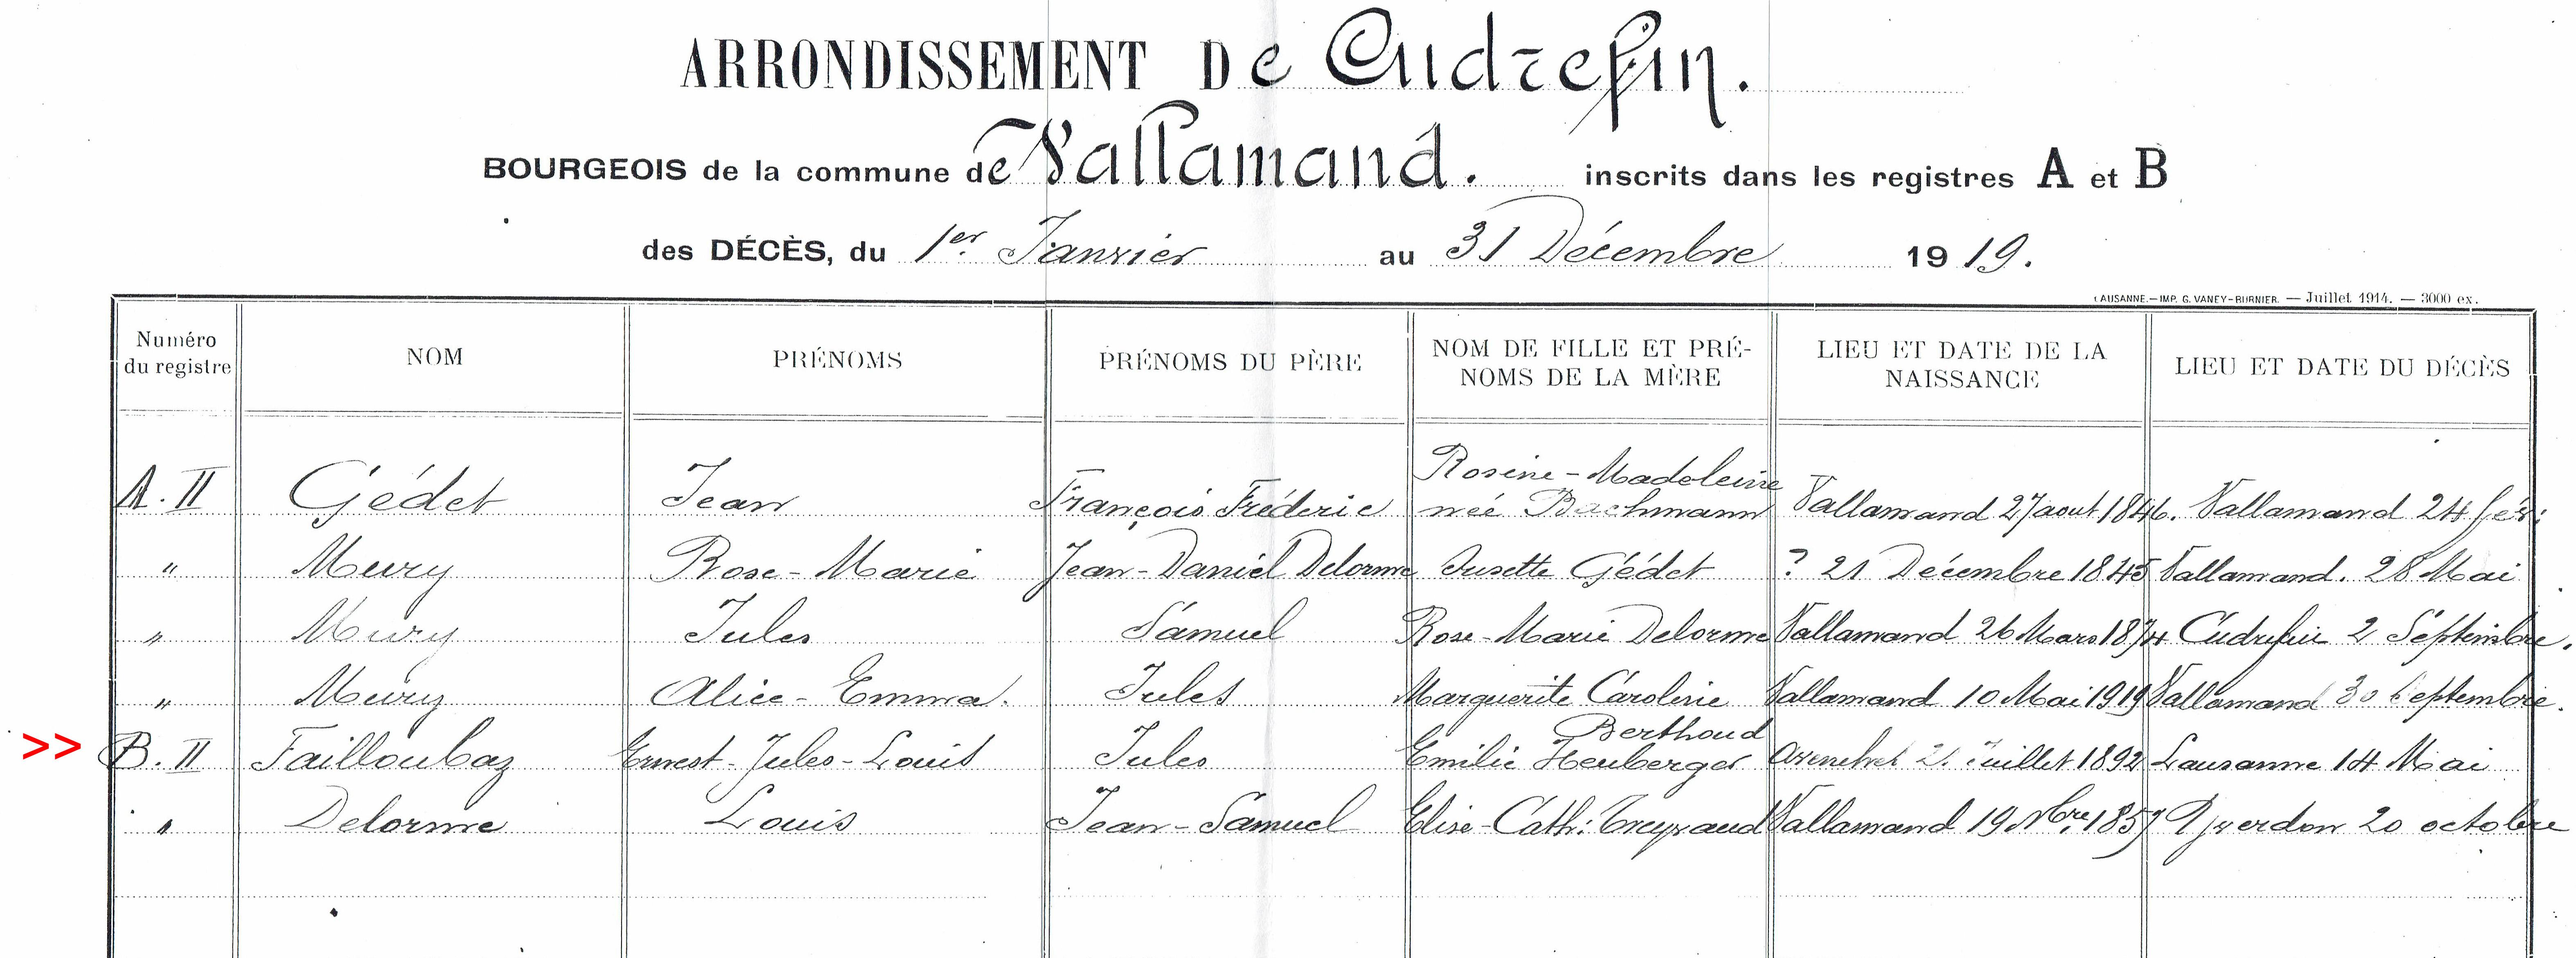 ARRONDISSEMENT De Cudrefin.
BOURGEOIS de la commune de Vallamand. inscrits dans les registres A et B
des DÉCÈS, du 1er. Janvier au 31 Décembre 1919.
LAUSANNE.—IMP. G. VANEY-BURNIER. — Juillet 1914. — 3000 ex.
Numéro du registre NOM PRÉNOMS PRÉNOMS DU PÈRE NOM DE FILLE ET PRÉ-NOMS DE LA MÈRE LIEU ET DATE DE LA NAISSANCE LIEU ET DATE DU DÉCÈS
A. II Gédet Jean François Fréderic Rosine-Madeleine née Bachmann Vallamand 27 aout 1846. Vallamand 24 fév:
" Meury Rose-Marie Jean-Daniel Delorme Susette Gédet ? 21 Décembre 1845 Vallamand. 28 Mai
" Meury Jules Samuel Rose-Marie Delorme Vallamand 26 Mars 1874 Cudrefin 2 Septembre.
" Meury Alice-Emma. Jules Marguerite Caroline Berthoud Vallamand 10 Mai 1919 Vallamand 30 Septembre.
>> B. II Failloubaz Ernest-Jules-Louis Jules Emilie Heuberger Avenches 21 Juillet 1892 Lausanne 14 Mai
" Delorme Louis Jean-Samuel Elise-Cath: Treyvaud Vallamand 19 Nbre 1857 Yverdon 20 octobre